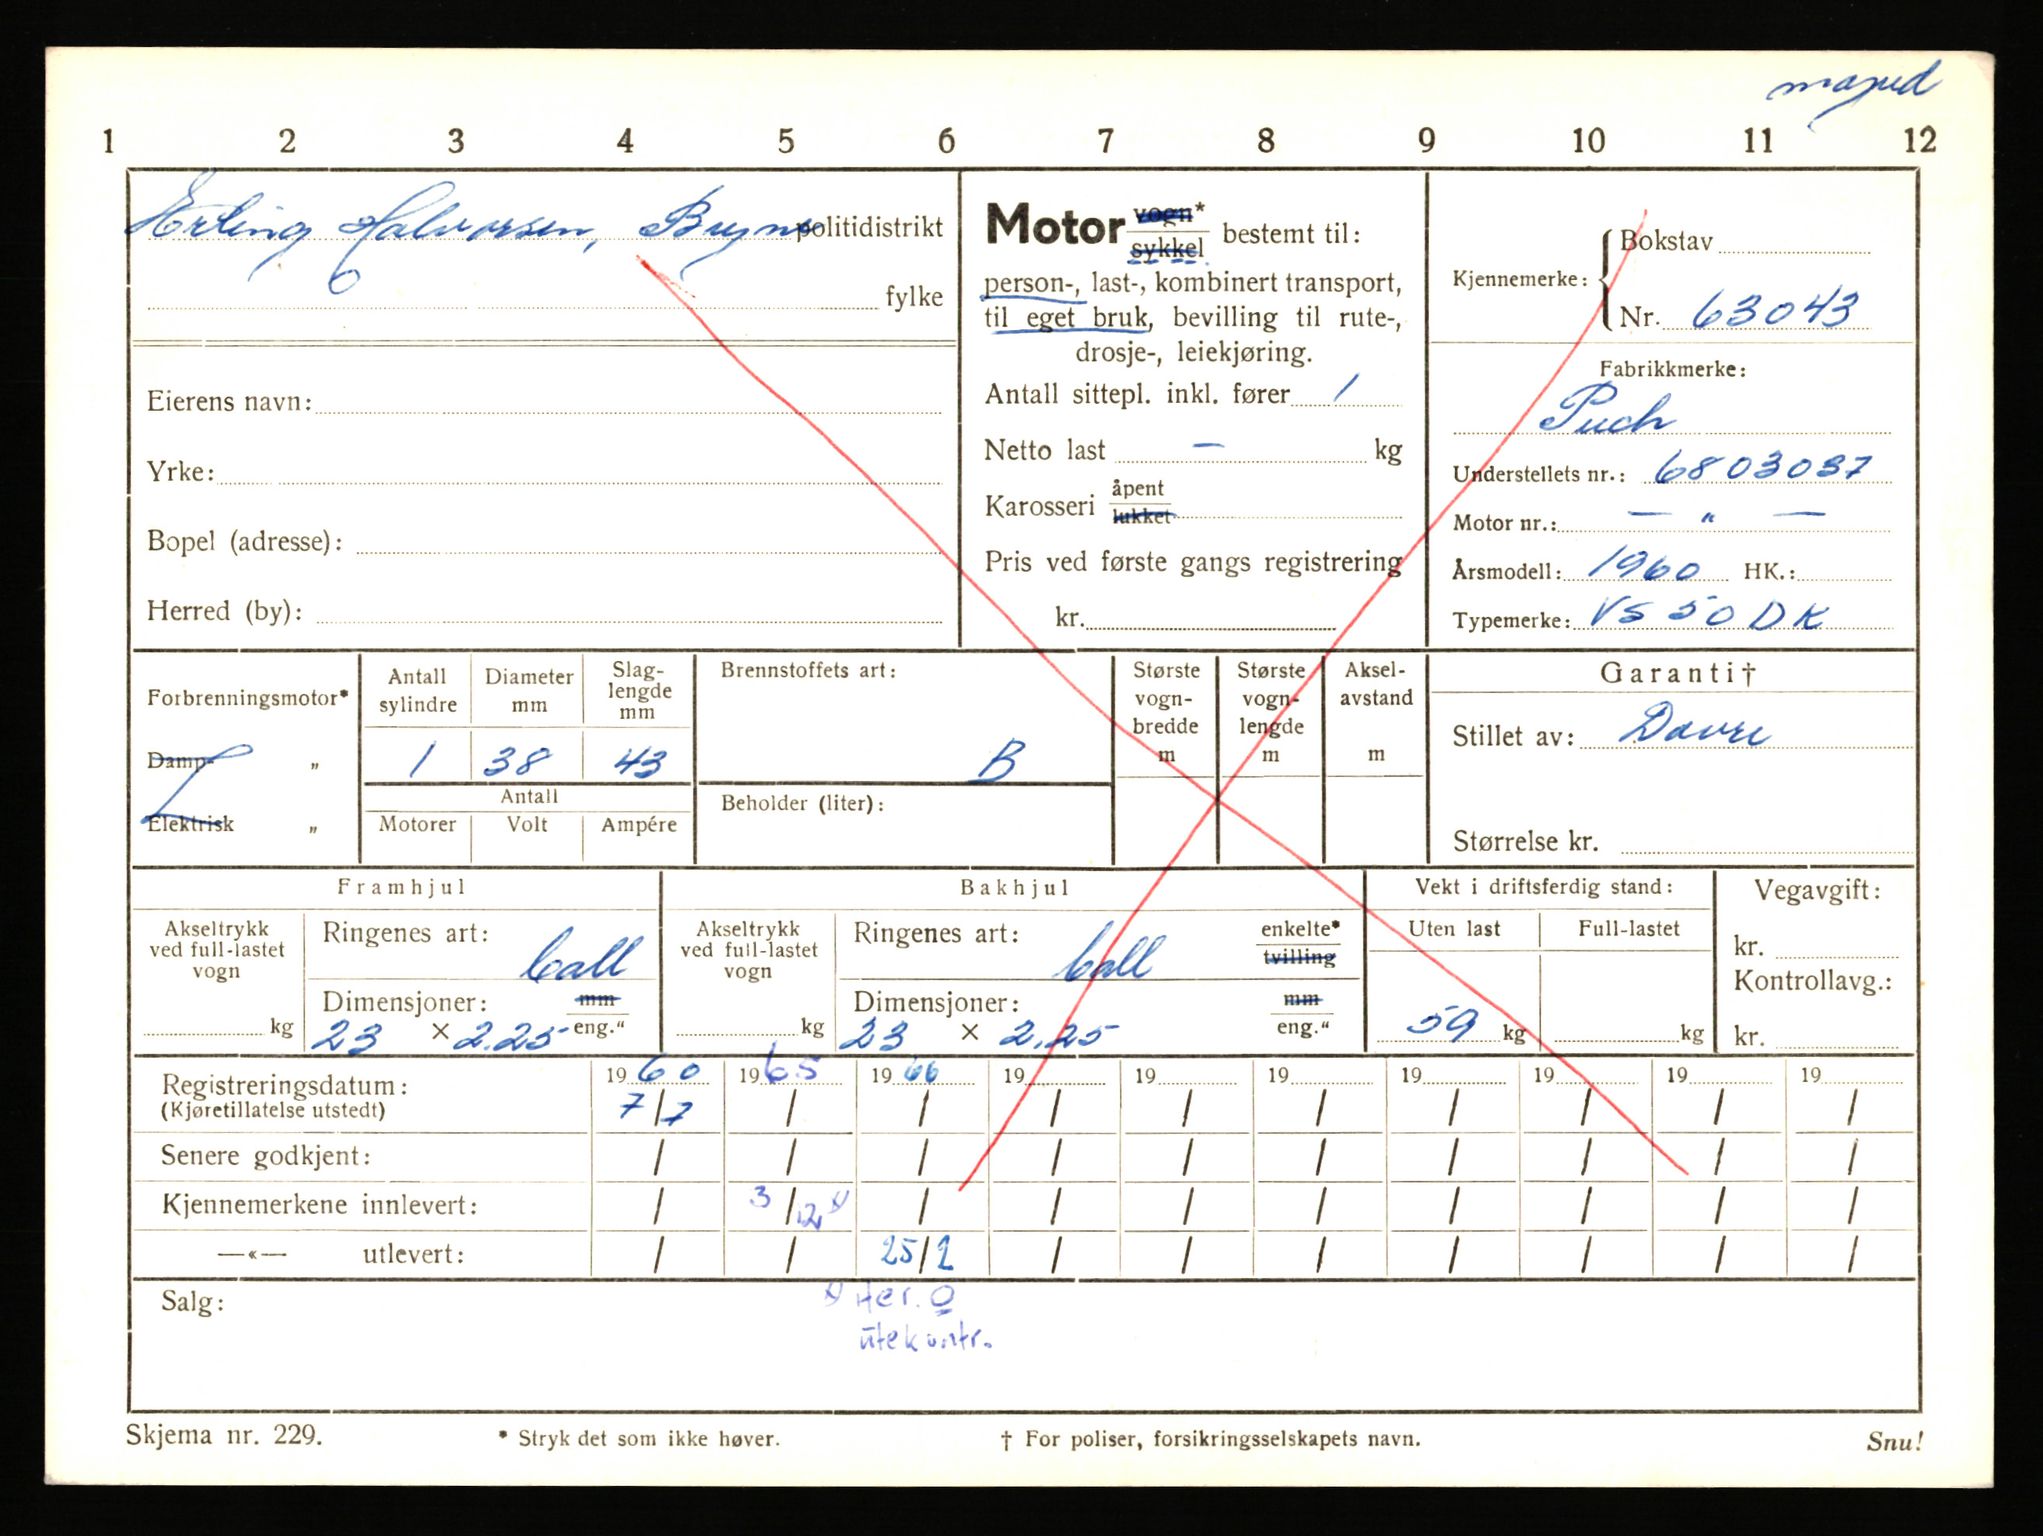 moped
1 2 3 4 5 6 7 8 9 10 11 12
Erling Halvorsen, Bryne politidistrikt
fylke
Eierens navn:
Yrke:
Bopel (adresse):
Herred (by):
Motor vogn* sykkel bestemt til:
person-, last-, kombinert transport,
til eget bruk, bevilling til rute-,
drosje-, leiekjøring.
Antall sittepl. inkl. fører 1
Netto last — kg
Karosseri åpent lukket
Pris ved første gangs registrering
kr.
Kjennemerke: Bokstav
Nr. 63043
Fabrikkmerke:
Puch
Understellets nr.: 6803037
Motor nr.: — " —
Årsmodell: 1960 HK.:
Typemerke: VS 50 DK
Forbrenningsmotor*
Damp- "
Elektrisk "
Antall sylindre Diameter mm Slag-lengde mm
1 38 43
Antall
Motorer Volt Ampére
Brennstoffets art:
B
Beholder (liter):
Største vogn-bredde m
Største vogn-lengde m
Aksel-avstand m
Garanti†
Stillet av: Dovre
Størrelse kr.
Framhjul
Akseltrykk ved full-lastet vogn
kg
Ringenes art:
ball
Dimensjoner: mm
23 × 2.25 eng."
Bakhjul
Akseltrykk ved full-lastet vogn
kg
Ringenes art: enkelte* tvilling
ball
Dimensjoner: mm
23 × 2.25 eng."
Vekt i driftsferdig stand:
Uten last Full-lastet
59 kg kg
Vegavgift:
kr.
Kontrollavg.:
kr.
Registreringsdatum: 1960 1965 1966 19 19 19 19 19 19 19
(Kjøretillatelse utstedt) 7/7 / / / / / / / / /
Senere godkjent: / / / / / / / / / /
Kjennemerkene innlevert: / 3/12 x) / / / / / / / /
—«— utlevert: / / 25/2 / / / / / / /
Salg:
x) Her. O
utekontr.
Skjema nr. 229.
* Stryk det som ikke høver.
† For poliser, forsikringsselskapets navn.
Snu!